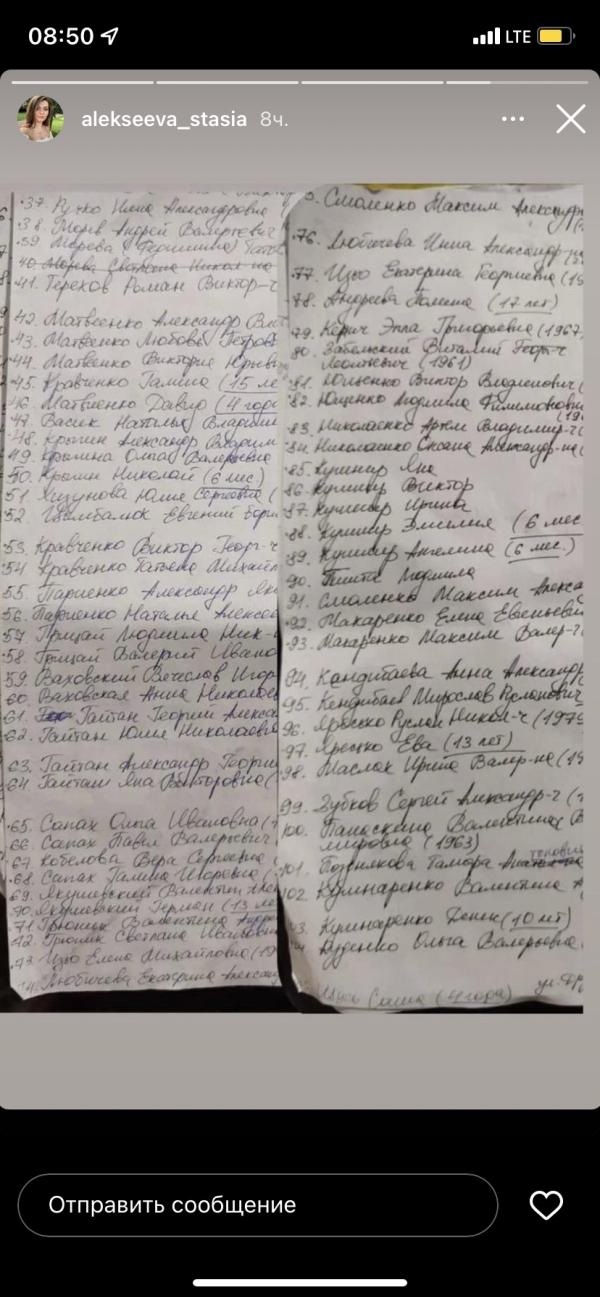 08:50
LTE
alekseeva_stasia 8ч.
37. Ручко Инна Александровна
38. Морв Андрей Валерьевич
39.
40.
41. Терехов Роман Виктор-ч
42. Матвеенко Александр
43. Матвенко Любовь Петров
44. Матвенко Виктория Юрьев
45. Кравченко Галина (15 ле
46. Матвиенко Давид (4 годи
47. Васик Наталья Владими
48. Крыпин Александр Владим
49. Крыпина Ольга Валерьевна
50. Крыпин Николай (6 мес)
51. Юлия Сергеевна (
52. Цымбалюк Евгений Бори
53. Кравченко Виктор Георг-ч
54 Кравченко Татьяна Михайл
55. Париенко Александр
56. Париенко Наталья Алексе
57 Грицай Людмила Ник-
58. Грицай Валерий Ивано
59 Ваховский Вячеслав Игор
60. Ваховская Анна Николае
61. Гайтан Георгий Алекса
62. Гайтан Юлия Николаевна
63. Гайтан Александр Георги
64. Гайтан Яна Викторовна (
65. Сапах Ольга Ивановна (
66. Сапах Павел Валерьевич
67. Кобелова Вера Сергеевна
68. Сапах Галина Игоревна (
69. Якушевский Валентин
70. Якушевский Герман (13 ле
71 Валентина
72. Светлана Иван
73 Цыо Елена Михайловна (19
74. Любичева Екатерина Алексан
5. Смоленко Максим Александр
76. Любичева Инна Александр
77. Цыо Екатерина Георгиевна (19
78. Андреева Полина (17 лет)
79. Керич Элла Григорьевна (1967
80. Забельский Виталий Георг-ч
Леонтьевич (1961)
81. Ющенко Виктор Владленович (
82. Ющенко Людмила Филимоновна
83. Николаенко Артём Владимир-ч (
84. Николаенко Оксана Александр-на (
85. Кушнир Яна
86. Кушнир Виктор
87. Кушнир Ирина
88. Кушнир Эмилия (6 мес
89. Кушнир Ангелина (6 мес.)
90. Людмила
91. Смоленко Максим Алекса
92. Макаренко Елена Евгеньевн
93. Макаренко Максим Валер-ч
94. Кандибаева Анна Александр
95. Кендибаев Мирослав Русланович
96. Яресько Руслан Никол-ч (1979
97. Ярецко Ева (13 лет)
98. Маслак Ирина Валер-на (19
99. Зубков Сергей Александр-ч (
100. Панаскина Валентина В
мировна (1963)
101. Позднякова Тамара
102. Кушнаренко Валентина
103. Кушнаренко Денис (10 лет)
Руденко Ольга Валерьевна
Саша (4 года)
Отправить сообщение